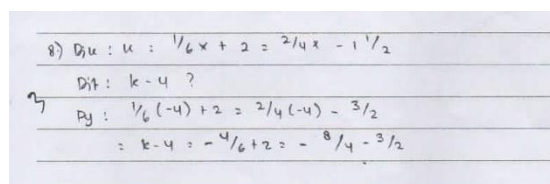 8.) Dik : k : 1/6 x + 2 = 2/4 x - 1 1/2
Dit : k - 4 ?
Py : 1/6 (-4) + 2 = 2/4 (-4) - 3/2
= k - 4 = - 4/6 + 2 = - 8/4 - 3/2